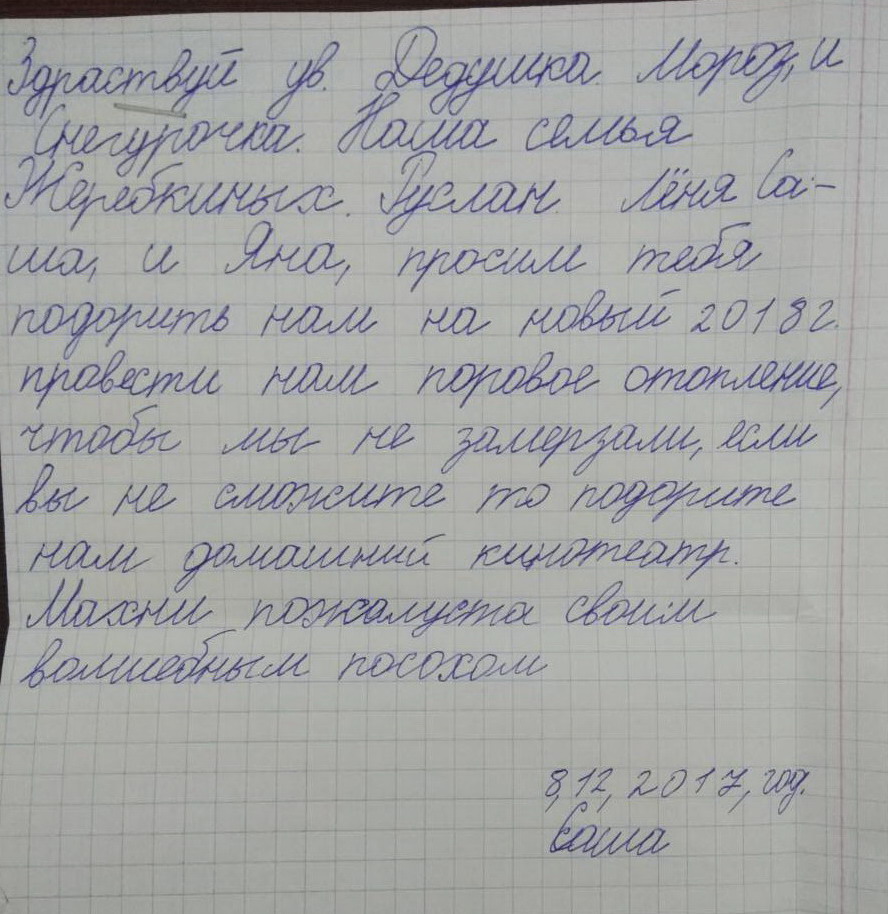 Здраствуй ув. Дедушка. Мороз, и
Снегурочка. Наша семья
Жеребкиных. Руслан. Лёня Са-
ша, и Яна, просим тебя
подорить нам на новый 2018г.
провести нам поровое отопление,
чтобы мы не замерзали, если
вы не сможите то подорите
нам домашний кинотеатр.
Махни пожалуста своим
волшебным посохом
8,12, 2017, год.
Саша